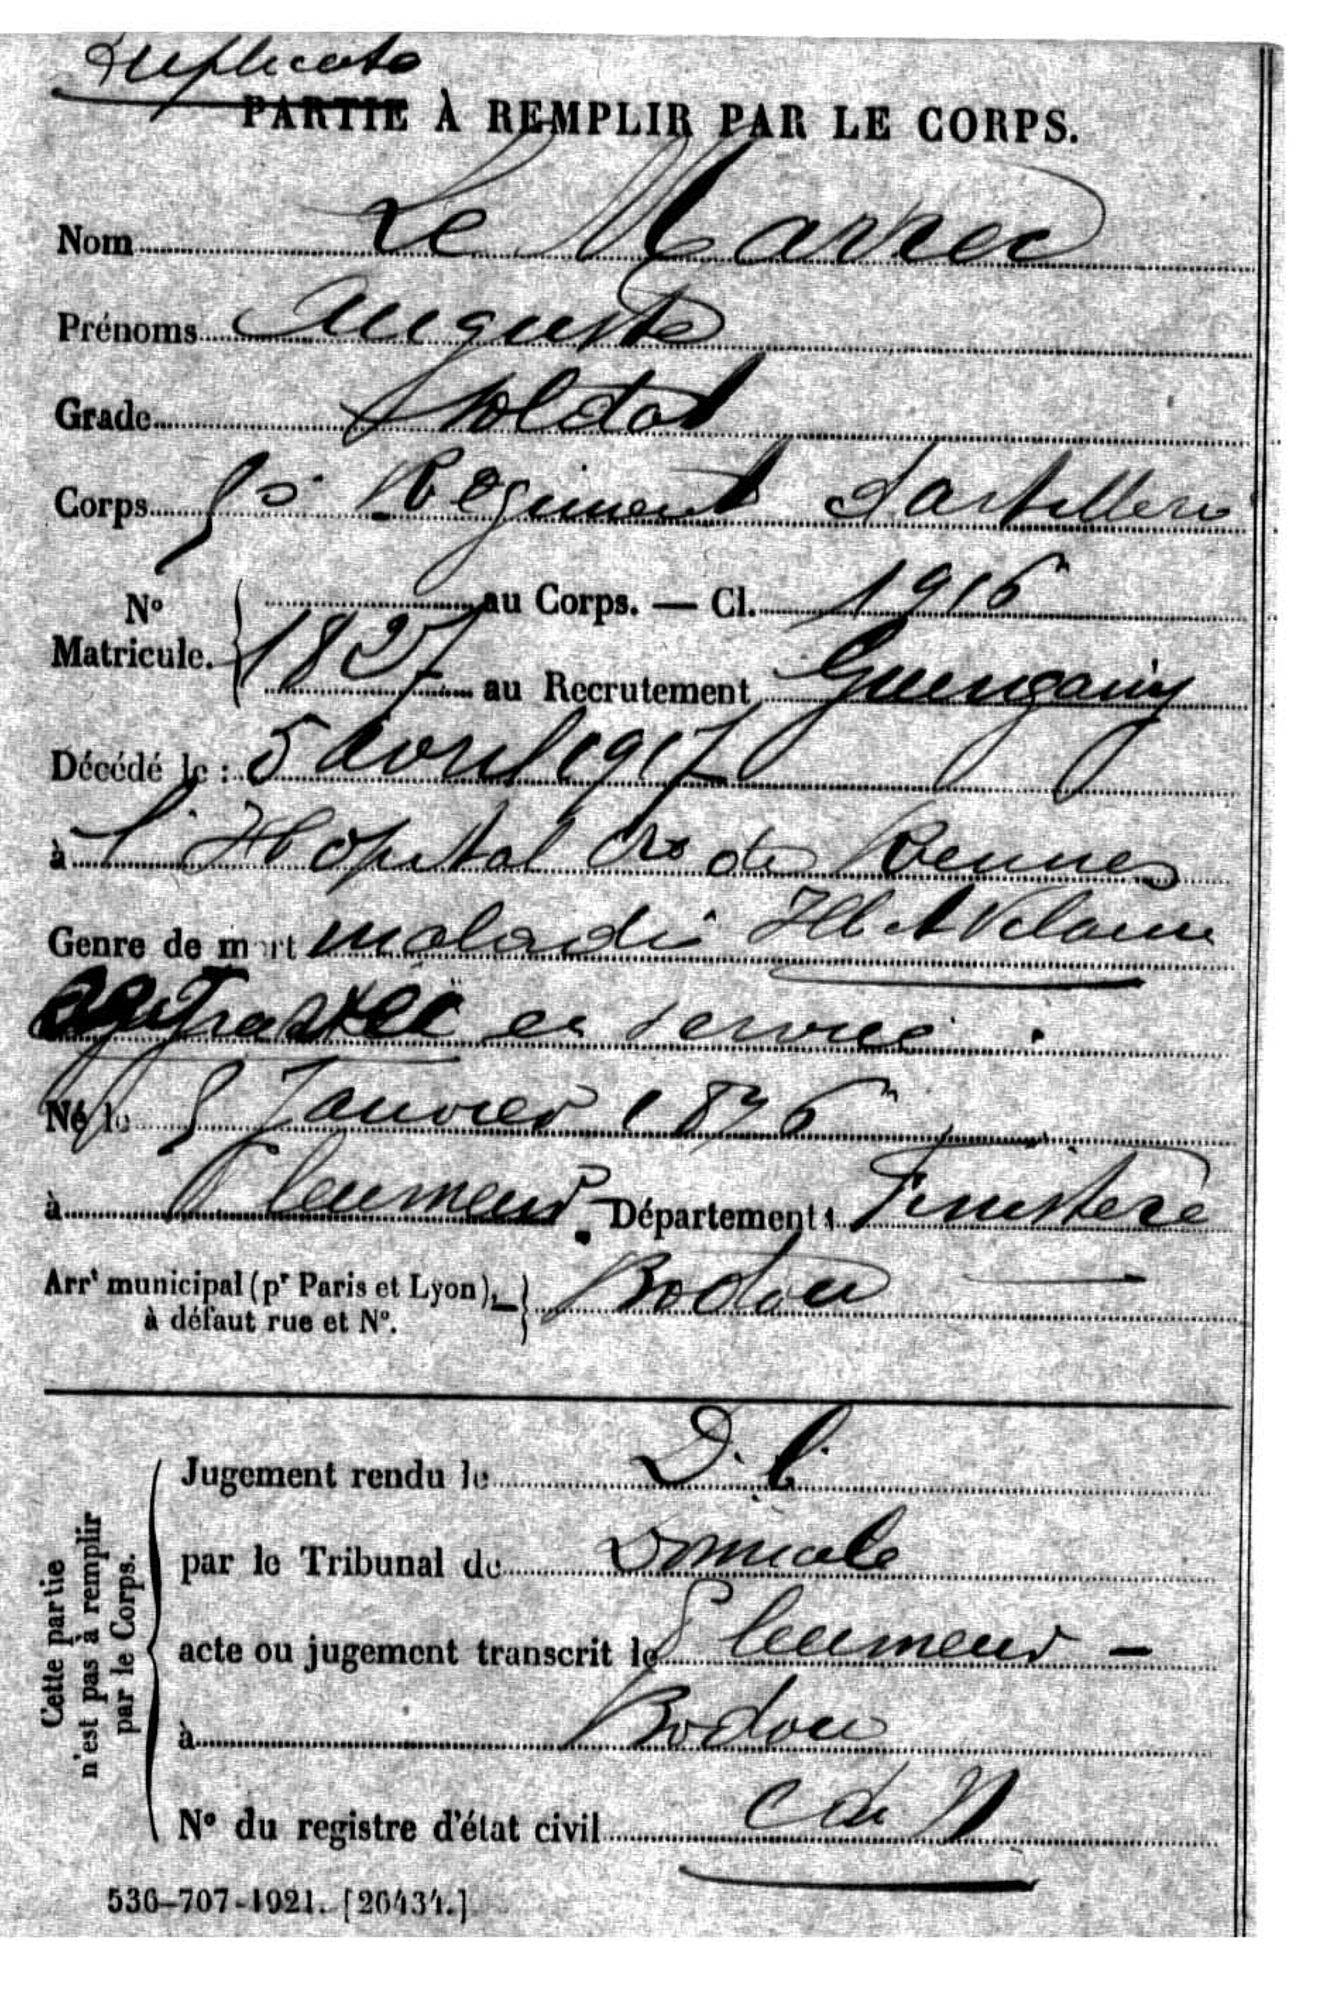 Duplicata
PARTIE À REMPLIR PAR LE CORPS.
Nom Le Marrec
Prénoms Auguste
Grade Soldat
Corps 50e Régiment d'artillerie
No Matricule. au Corps. — Cl. 1916
1827 au Recrutement Guingamp
Décédé le : 5 avril 1917
à l'Hôpital de Rennes
Genre de mort maladie Ille et Vilaine
contractée en service.
Né le 5 Janvier 1896
à Pleumeur - Département : Finistère
Arrt municipal (pr Paris et Lyon), - à défaut rue et No. Bodou
Jugement rendu le D. C.
par le Tribunal de Domicile
acte ou jugement transcrit le Pleumeur -
à Bodou
No du registre d'état civil C du N
Cette partie n'est pas à remplir par le Corps.
536-707-1921. [26434.]